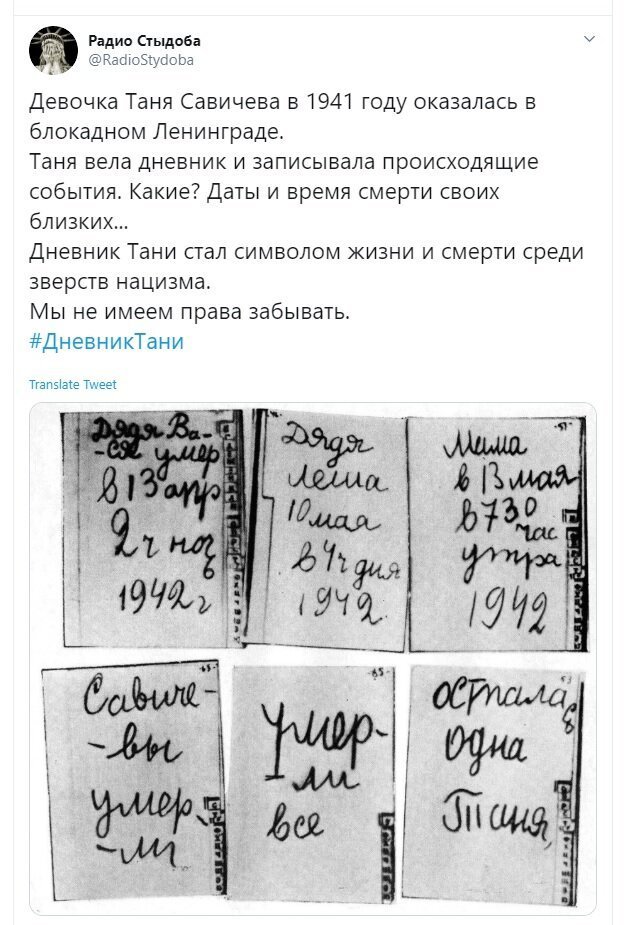 Радио Стыдоба
@RadioStydoba
Девочка Таня Савичева в 1941 году оказалась в
блокадном Ленинграде.
Таня вела дневник и записывала происходящие
события. Какие? Даты и время смерти своих
близких...
Дневник Тани стал символом жизни и смерти среди
зверств нацизма.
Мы не имеем права забывать.
#ДневникТани
Translate Tweet
Дядя Ва-
-ся умер
в 13 апр
2 ч ноч
1942 г
Дядя
Леша
10 мая
в 4 ч дня
1942
Мама
в 13 мая
в 730
час
утра
1942
Савиче-
-вы
умер-
-ли
умер-
-ли
все
осталась
одна
Таня